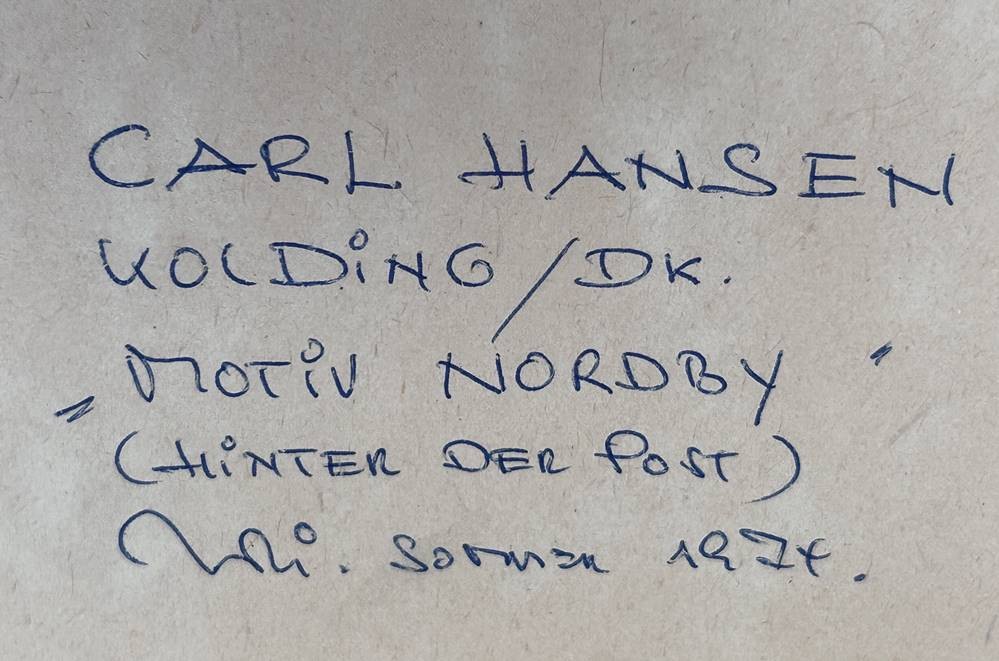 CARL HANSEN
KOLDiNG / DK.
„MOTiV NORDBY"
(HiNTER DER POST)
Sommer 1974.